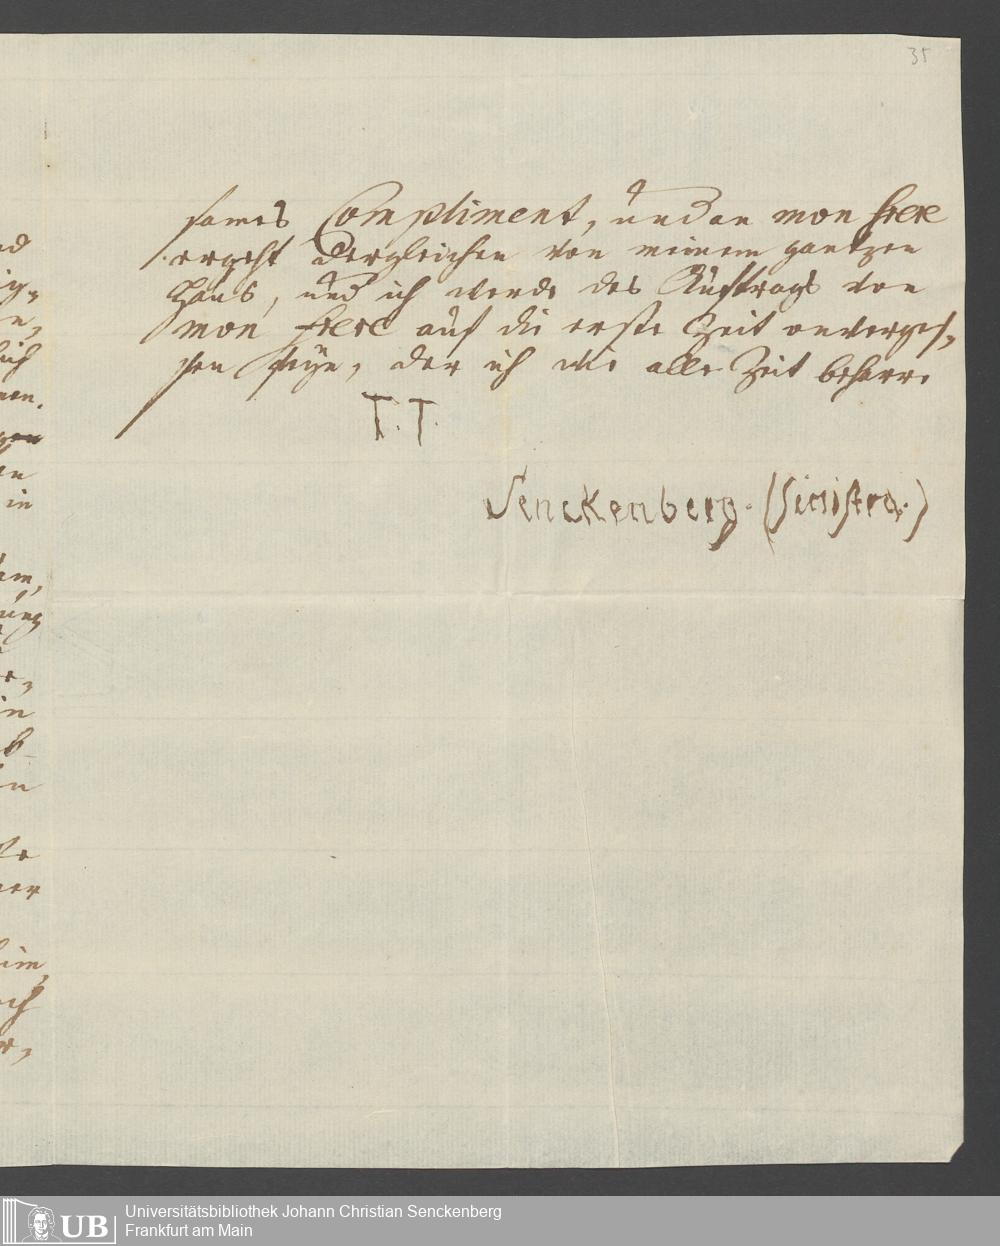 35
sames Compliment, und an mon frere
ergeht dergleichen von meinem gantzen
Haus, und ich werde des Auftrags von
mon frere auf die erste Zeit unverges,
sen seyn, der ich wie alle Zeit beharre
T. T.
Senckenberg. (sinistra.)
UB
Universitätsbibliothek Johann Christian Senckenberg
Frankfurt am Main